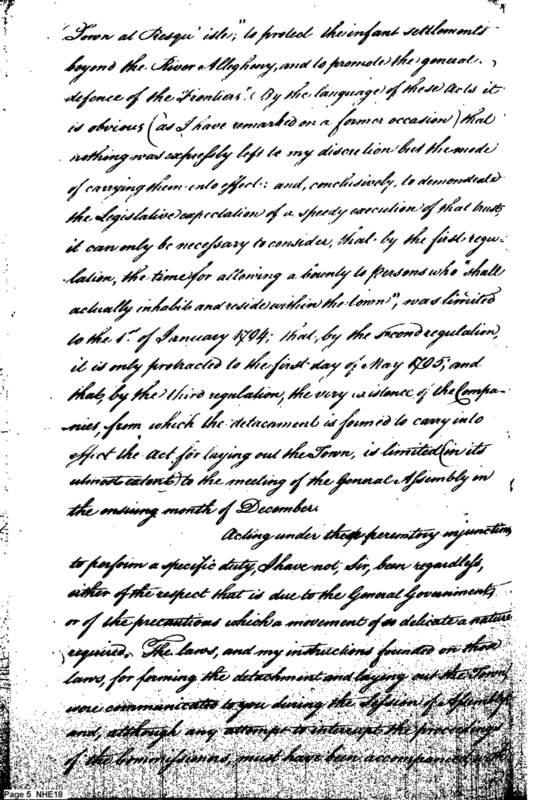 Town at Presqu' isle," "to protect the infant settlements
beyond the River Alleghony, and to promote the general
defence of the Frontiers". By the language of these Acts it
is obvious (as I have remarked on a former occasion) that
nothing was expressly left to my discretion but the mode
of carrying them into effect: and, conclusively, to demonstrate
the Legislative expectation of a speedy execution of that trust,
it can only be necessary to consider, that by the first regu-
lation, the time for allowing a bounty to Persons who "shall
actually inhabit and reside within the town", was limited
to the 1st. of January 1794; that, by the second regulation,
it is only protracted to the first day of May 1795; and
that, by the third regulation, the very existence of the Compa-
nies, from which the detachment is formed to carry into
effect the Act for laying out the Town, is limited (in its
utmost extent) to the meeting of the General Assembly in
the ensuing month of December.
Acting under these peremtory injunctions
to perform a specific duty, I have not, Sir, been regardless,
either of the respect that is due to the General Government,
or of the precautions which a movement of so delicate a nature
required. The laws, and my instructions founded on those
laws, for forming the detachment and laying out the Town,
were communicated to you during the Session of Assembly;
and, although any attempt to interrupt the proceedings
of the Commissioners, must have been accompanied with
Page 5 NHE18